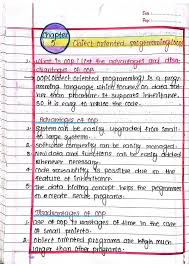 Date
Page
Chapter
5
Object oriented programming(oop)
1. What is oop? List the advantages and disadvantages of oop.
→ oop(object oriented programming) is a programming language which focuses on data rather than procedure. It supports inheritance. So it is easy to reuse the code.
Advantages of oop
1. System can be easily upgraded from small to large system.
2. Software complexity can be easily managed.
3. New data and functions can be easily added whenever necessary.
4. Code reusability is possible due to the feature of inheritance.
5. The data hiding concept helps the programmer to create secure programs.
Disadvantages of oop
1. Use of oop is wastages of time in the case of small projects.
2. Object oriented programs are much larger than other programs.